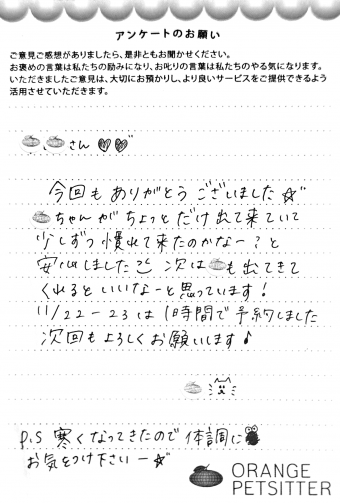 アンケートのお願い
ご意見ご感想がありましたら、是非ともお聞かせください。
お褒めの言葉は私たちの励みになり、お叱りの言葉は私たちのやる気になります。
いただきましたご意見は、大切にお預かりし、より良いサービスをご提供できるよう
活用させていただきます。
さん♡♡
今回もありがとうございました☆
ちゃんがちょっとだけ出て来ていて
少しずつ慣れて来たのかなー？と
安心しました 次は も出てきて
くれるといいなーと思っています！
11/22-23は1時間で予約しました
次回もよろしくお願いします♪
P.S 寒くなってきたので体調に
お気をつけ下さいー☆
ORANGE
PETSITTER